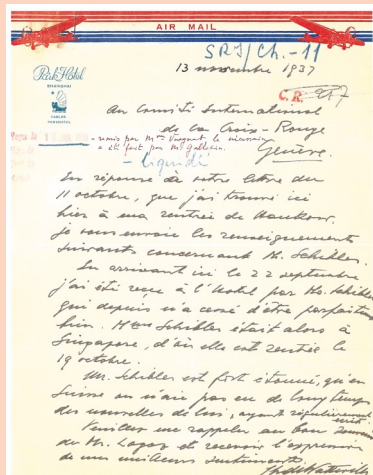 AIR MAIL
SRI/Ch.-11
13 novembre 1937
Park Hotel
SHANGHAI
CABLES
PARKHOTEL
C.R. 217
Au Comité International
de la Croix-Rouge
Genève.
- remis par Mme
a été fait par Mr
- Liquidé
En réponse à votre lettre du
11 octobre, que j'ai trouvée ici
hier à ma rentrée de Hankow,
je vous envoie les renseignements
suivants concernant M. Schibler.
En arrivant ici le 22 septembre
j'ai été reçu à l'hotel par Mr. Schibler
qui depuis n'a cessé d'être parfaitement
bien. Mme Schibler était alors à
Singapore, d'où elle est rentrée le
19 octobre.
Mr. Schibler est fort étonné, qu'en
Suisse on n'aie pas eu de long temps
des nouvelles de lui, ayant régulièrement
écrit
Veuillez me rappeler au bon souvenir
de Mr. et recevoir l'expression
de mes meilleurs sentiments